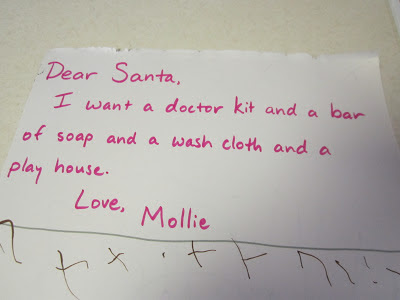 Dear Santa,
I want a doctor kit and a bar
of soap and a wash cloth and a
play house.
Love,
Mollie